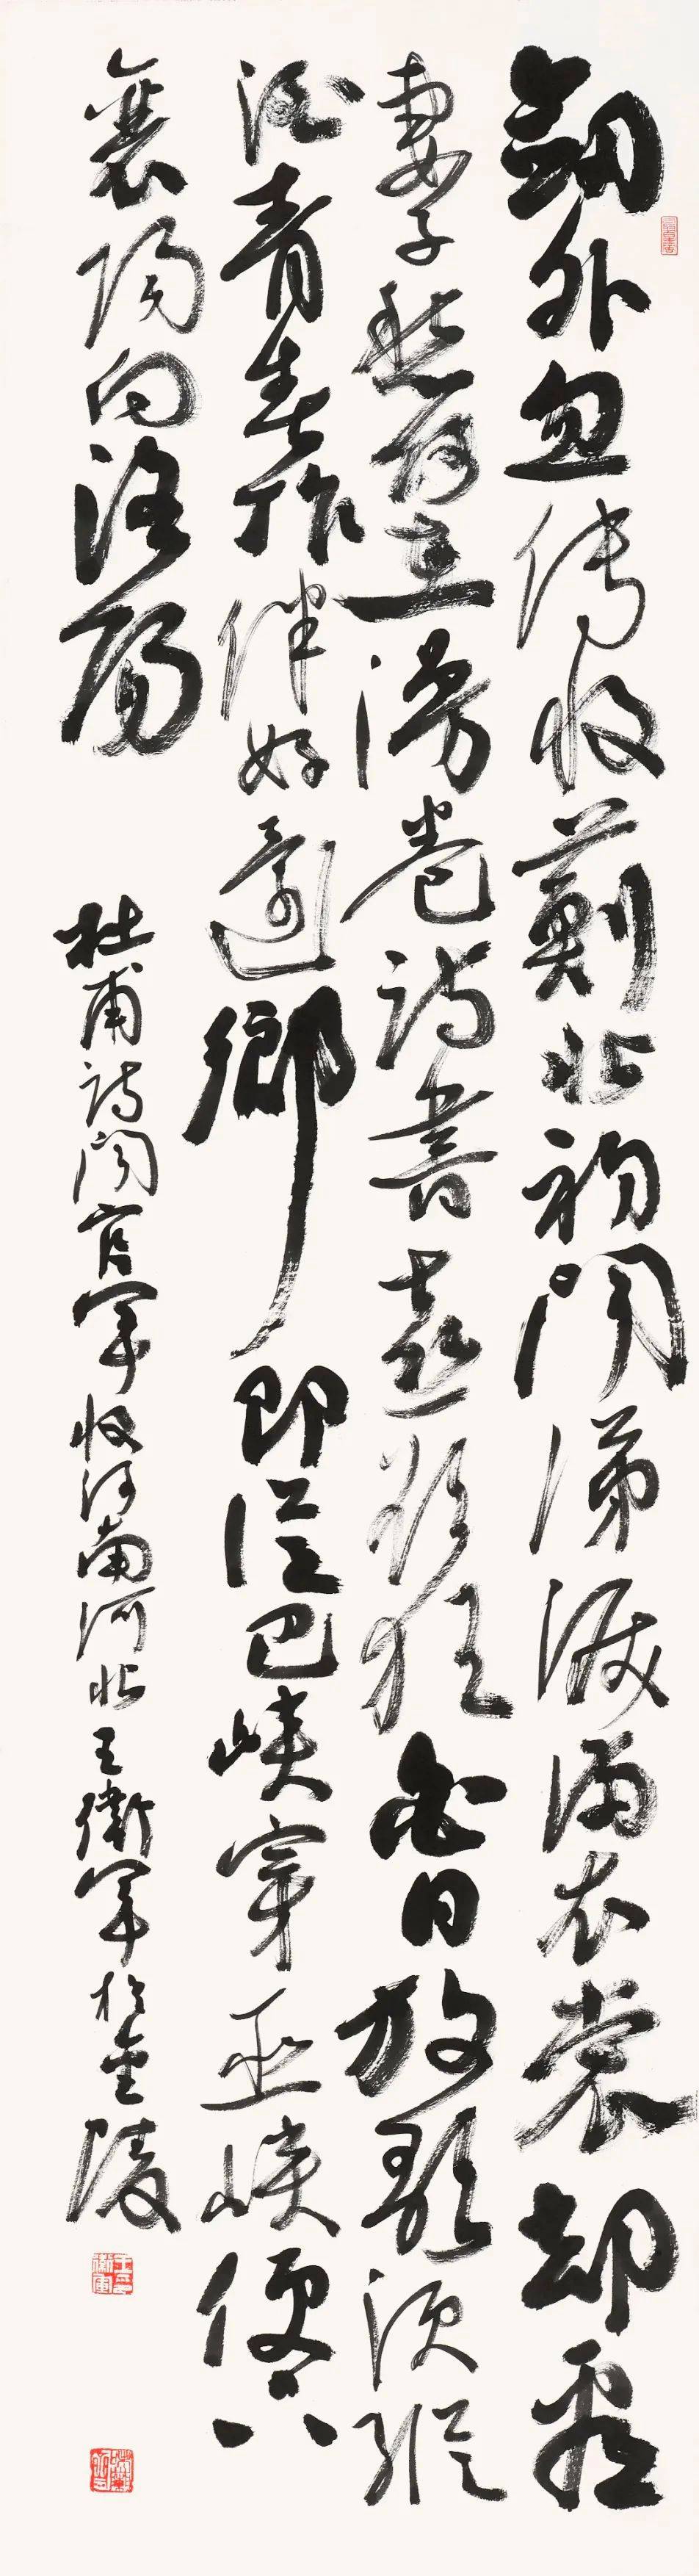 劍外忽傳收薊北初聞涕淚滿衣裳却看
妻子愁何在漫卷詩書喜欲狂白日放歌須縱
酒青春作伴好還鄉即從巴峽穿巫峽便下
襄陽向洛陽
杜甫詩聞官軍收河南河北王衛軍於金陵